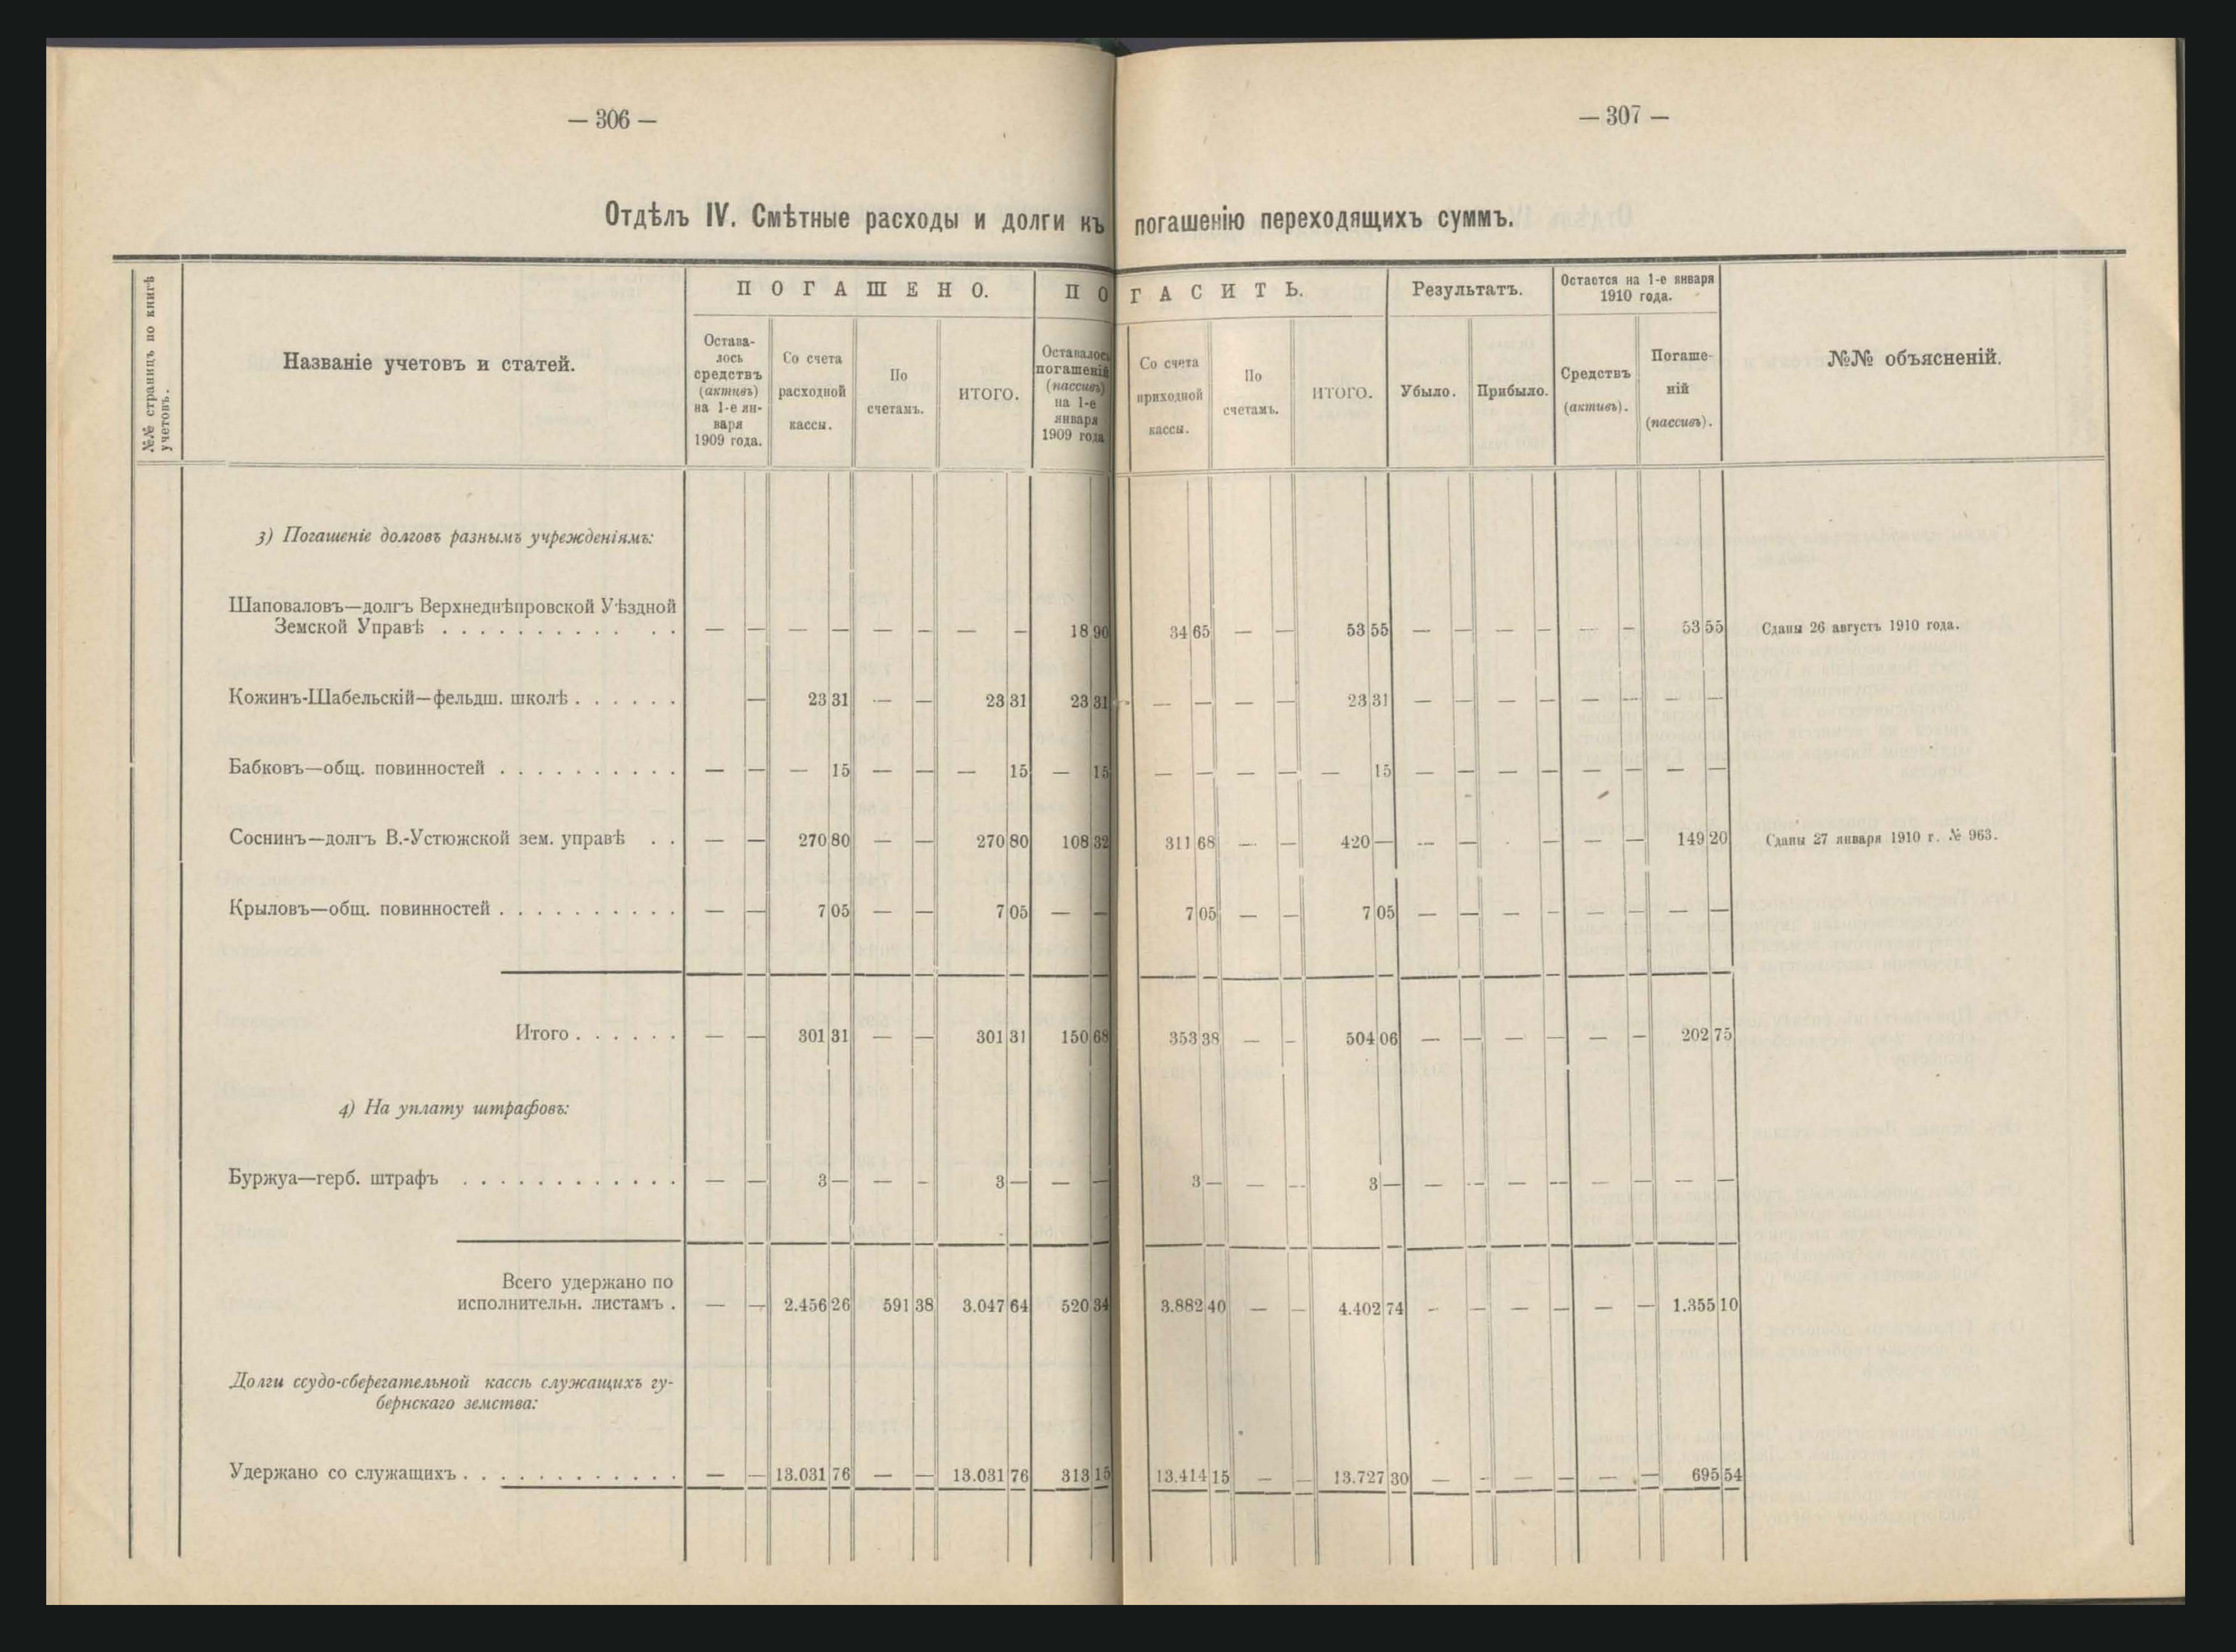 — 306 —
— 307 —
Отдѣлъ IV. Смѣтные расходы и долги къ погашенію переходящихъ суммъ.
№№ страницъ по книгѣ учетовъ.
Названіе учетовъ и статей.
ПОГАШЕНО.
ПОГАСИТЬ.
Результатъ.
Остается на 1-е января 1910 года.
№№ объясненій.
Остава-
лось
средствъ
(активъ)
на 1-е ян-
варя
1909 года.
Со счета
расходной
кассы.
По
счетамъ.
ИТОГО.
Оставалось
погашеній
(пассивъ)
на 1-е
января
1909 года
Со счета
приходной
кассы.
По
счетамъ.
ИТОГО.
Убыло.
Прибыло.
Средствъ
(активъ).
Погаше-
ній
(пассивъ).
3) Погашеніе долговъ разнымъ учрежденіямъ:
Шаповаловъ—долгъ Верхнеднѣпровской Уѣздной
Земской Управѣ . . . . . . . . . . . . — — — — — — — — 18 90 34 65 — — 53 55 — — — — — — 53 55 Сданы 26 августъ 1910 года.
Кожинъ-Шабельскій—фельдш. школѣ . . . . . . — 23 31 — — 23 31 23 31 — — — — 23 31 — — — — — — — —
Бабковъ—общ. повинностей . . . . . . . . . . — — — 15 — — — 15 — 15 — — — — — 15 — — — — — — — —
Соснинъ—долгъ В.-Устюжской зем. управѣ . . — — 270 80 — — 270 80 108 32 311 68 — — 420 — — — — — — 149 20 Сданы 27 января 1910 г. № 963.
Крыловъ—общ. повинностей . . . . . . . . . . — — 7 05 — — 7 05 — — 7 05 — — 7 05 — — — — — — — —
Итого . . . . . . — — 301 31 — — 301 31 150 68 353 38 — — 504 06 — — — — — — 202 75
4) На уплату штрафовъ:
Буржуа—герб. штрафъ . . . . . . . . . . . . — — 3 — — — 3 — — — 3 — — — 3 — — — — — — — — —
Всего удержано по
исполнительн. листамъ . — — 2.456 26 591 38 3.047 64 520 34 3.882 40 — — 4.402 74 — — — — — — 1.355 10
Долги ссудо-сберегательной кассѣ служащихъ гу-
бернскаго земства:
Удержано со служащихъ . . . . . . . . . . . . — — 13.031 76 — — 13.031 76 313 15 13.414 15 — — 13.727 30 — — — — — — 695 54